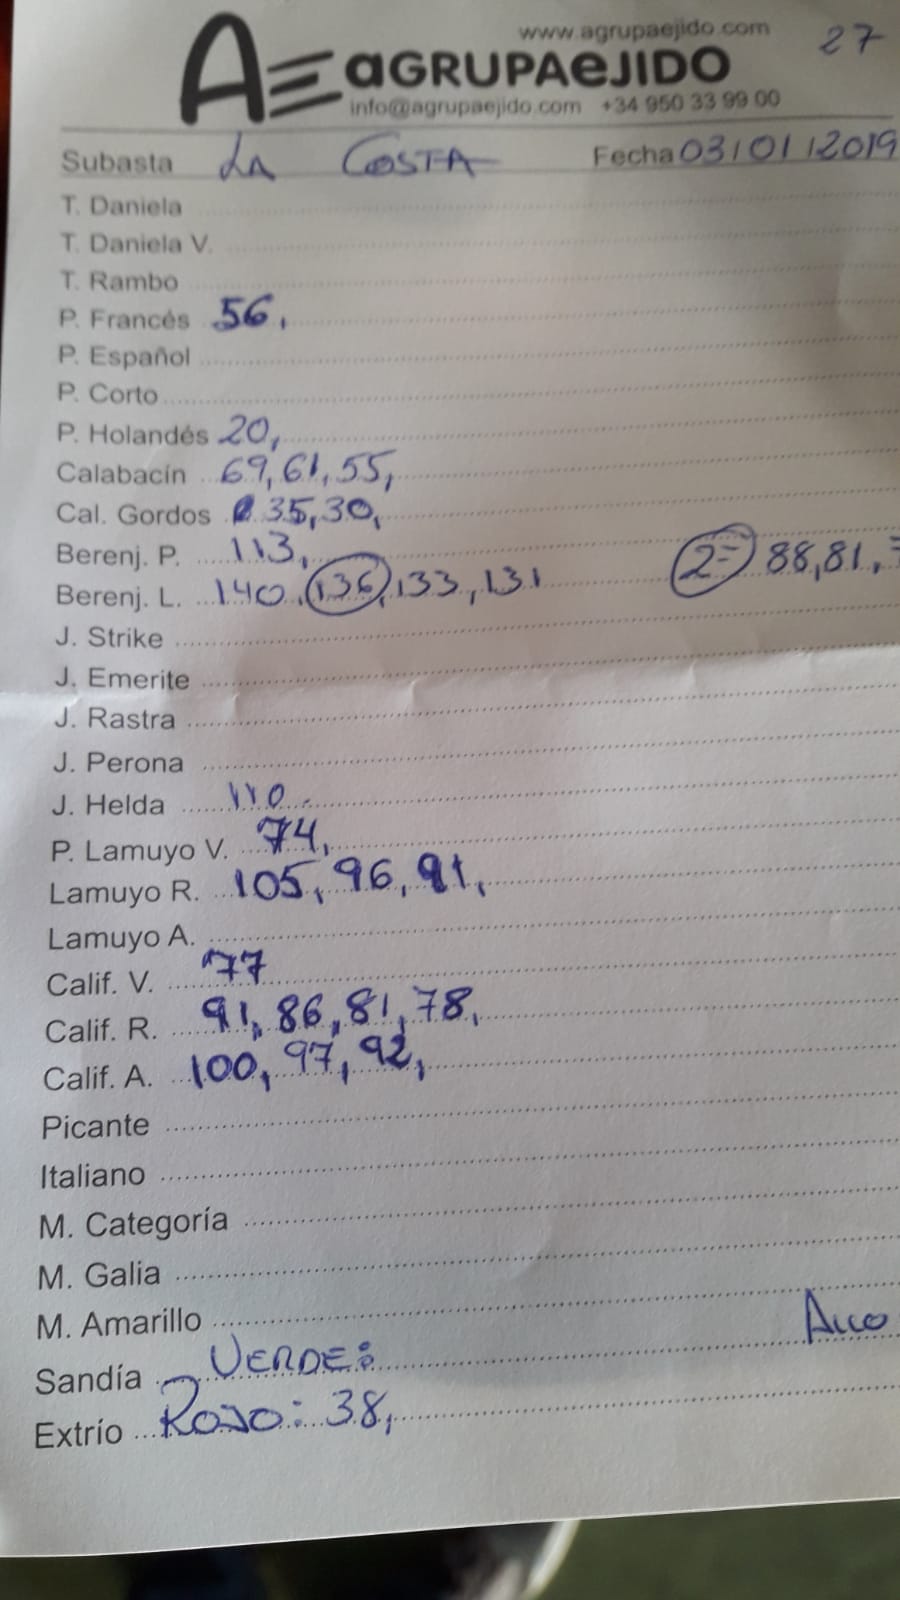 www.agrupaejido.com 27
AE aGRUPAeJIDO
info@agrupaejido.com +34 950 33 99 00
Subasta LA COSTA Fecha 03/01/2019
T. Daniela
T. Daniela V.
T. Rambo
P. Francés 56,
P. Español
P. Corto
P. Holandés 20,
Calabacín 69, 61, 55,
Cal. Gordos 35, 30,
Berenj. P. 113,
Berenj. L. 140, 136, 133, 131 2= 88, 81,
J. Strike
J. Emerite
J. Rastra
J. Perona
J. Helda 110
P. Lamuyo V. 74,
Lamuyo R. 105, 96, 91,
Lamuyo A.
Calif. V. 77
Calif. R. 91, 86, 81, 78,
Calif. A. 100, 97, 92,
Picante
Italiano
M. Categoría
M. Galia
M. Amarillo
Sandía VERDE:
Extrío ROJO: 38,